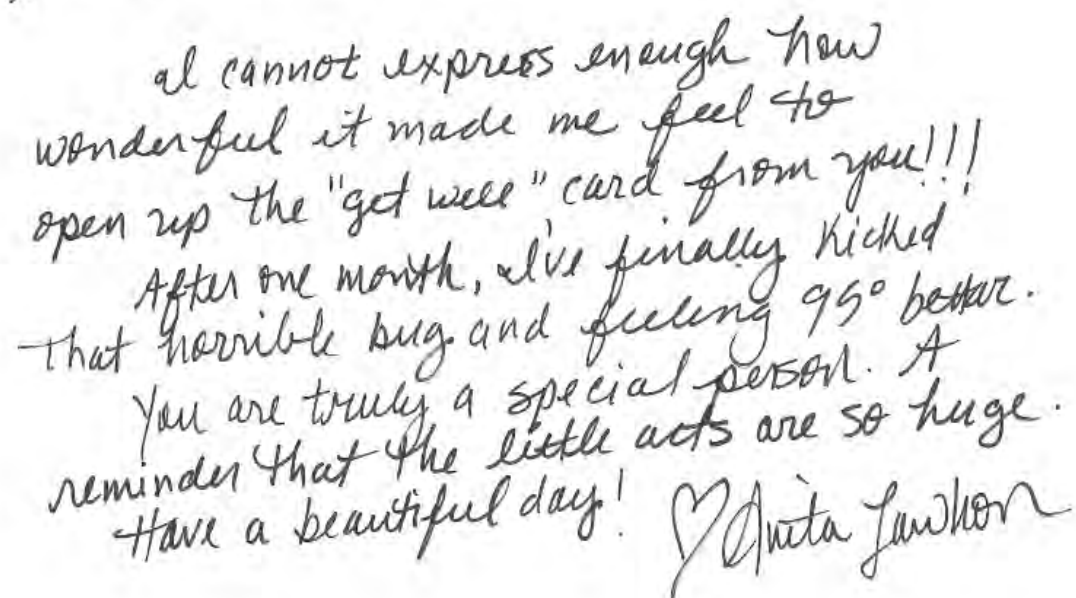 I cannot express enough how
wonderful it made me feel to
open up the "get well" card from you!!!
After one month, I've finally kicked
that horrible bug and feeling 95° better.
You are truly a special person. A
reminder that the little acts are so huge.
Have a beautiful day! ♡ Anita Lawhon